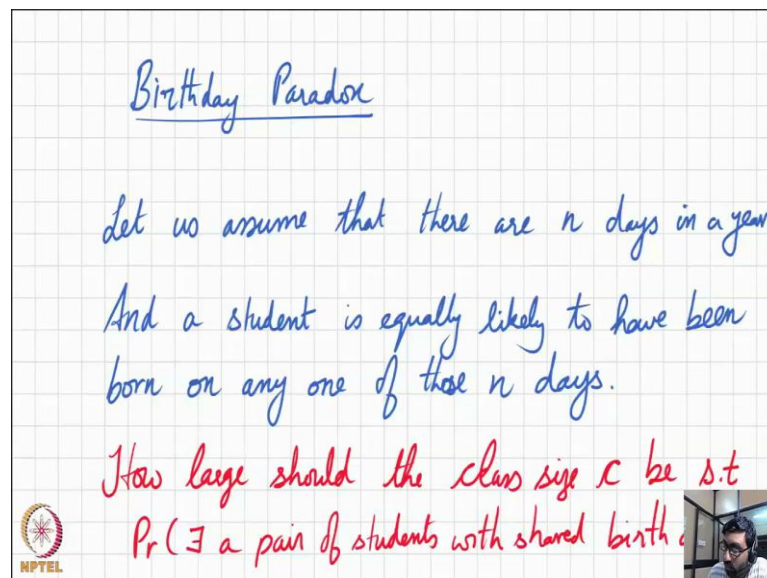 Birthday Paradox
Let us assume that there are n days in a year
And a student is equally likely to have been
born on any one of those n days.
How large should the class size C be s.t
Pr(∃ a pair of students with shared birth
NPTEL